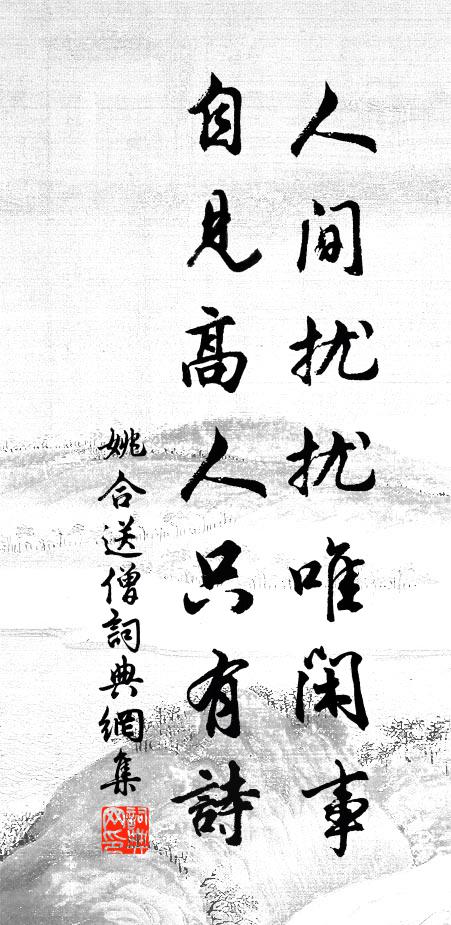 人间扰扰唯闲事
自见高人只有詩
姚合送僧詞典網集